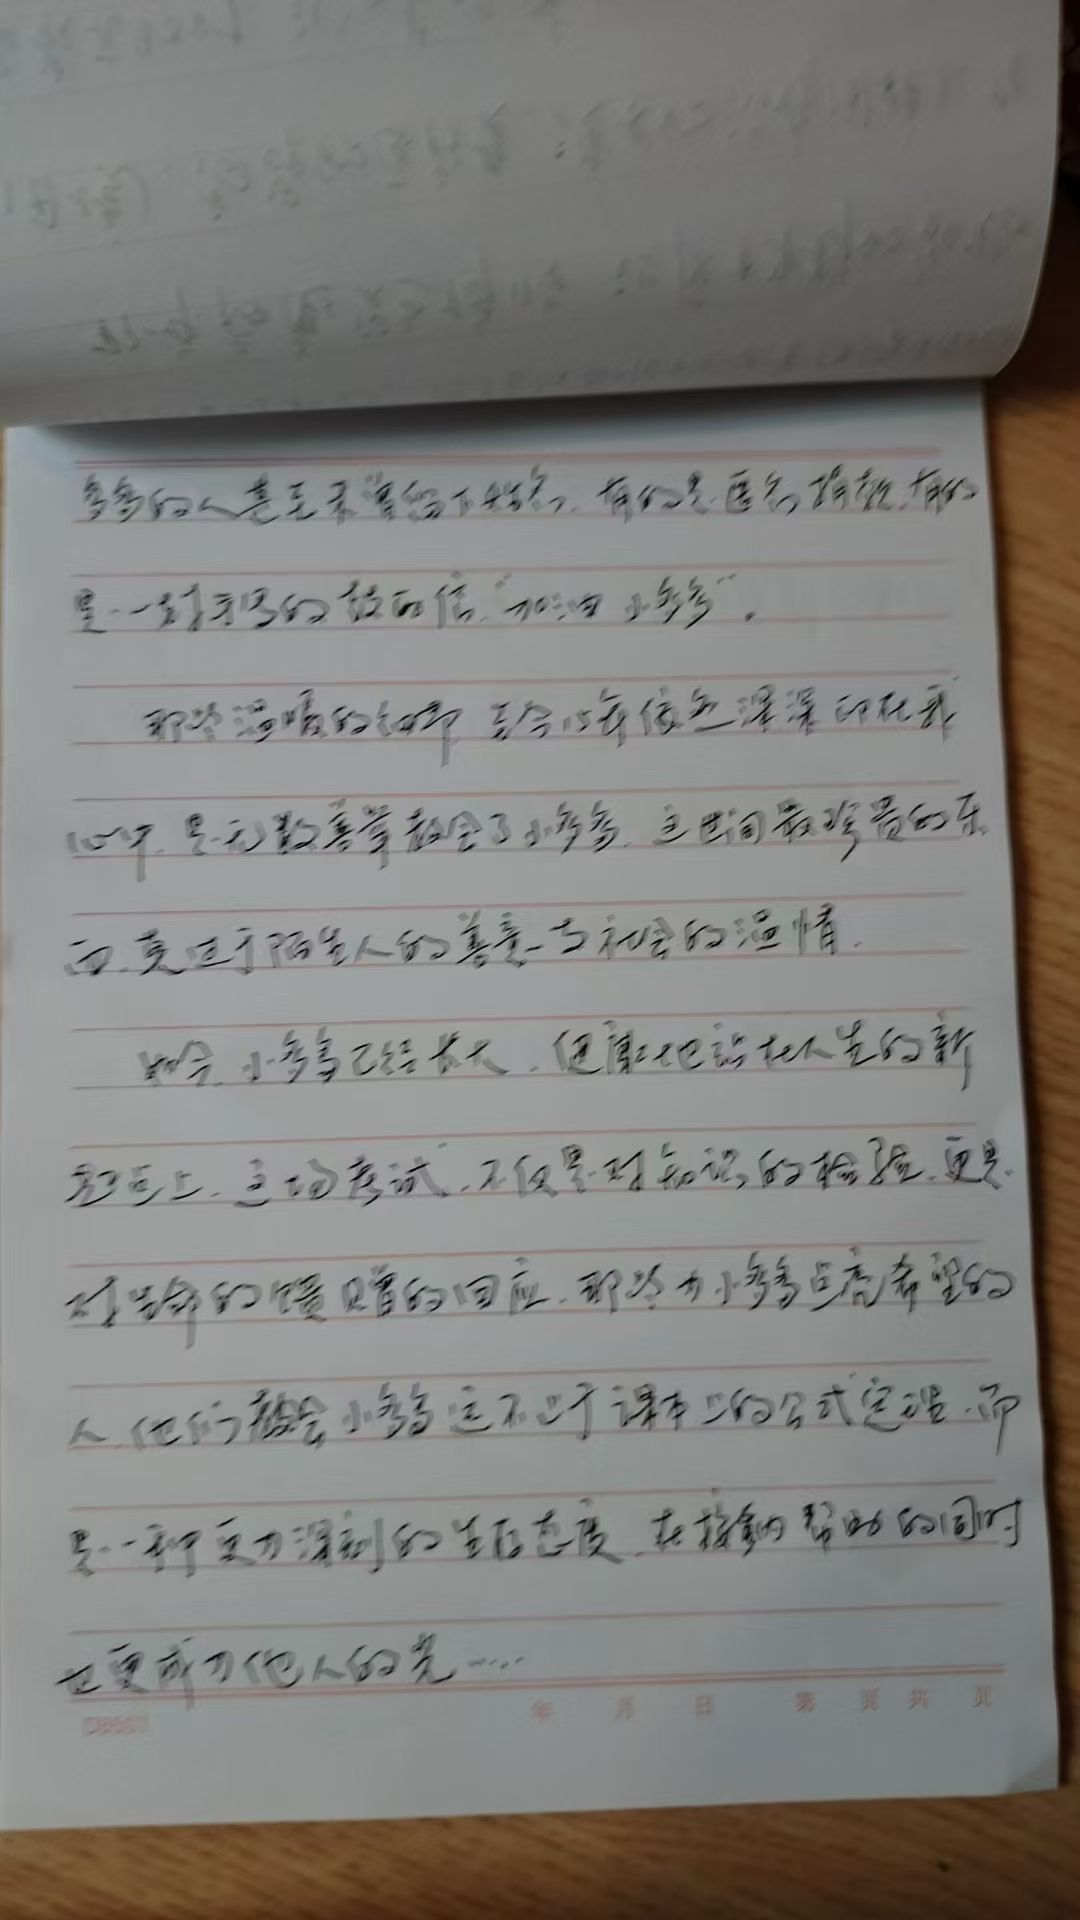 多多的人甚至未曾留下姓名，有的是匿名捐款，有的
是一封手写的鼓励信，“加油 小多多”。
那些温暖的细节 至今15年依然深深印在我
心中，是无数善举教会了小多多，这世间最珍贵的东
西，莫过于陌生人的善意与社会的温情。
如今，小多多已经长大，健康地站在人生的新
起点上，这场考试，不仅是对知识的检验，更是
对生命的馈赠的回应，那些为小多多点亮希望的
人，他们教会小多多这不止于课本上的公式定理，而
是一种更为深刻的生活态度，在接纳帮助的同时
也要成为他人的光……
年 月 日 第 页 共 页